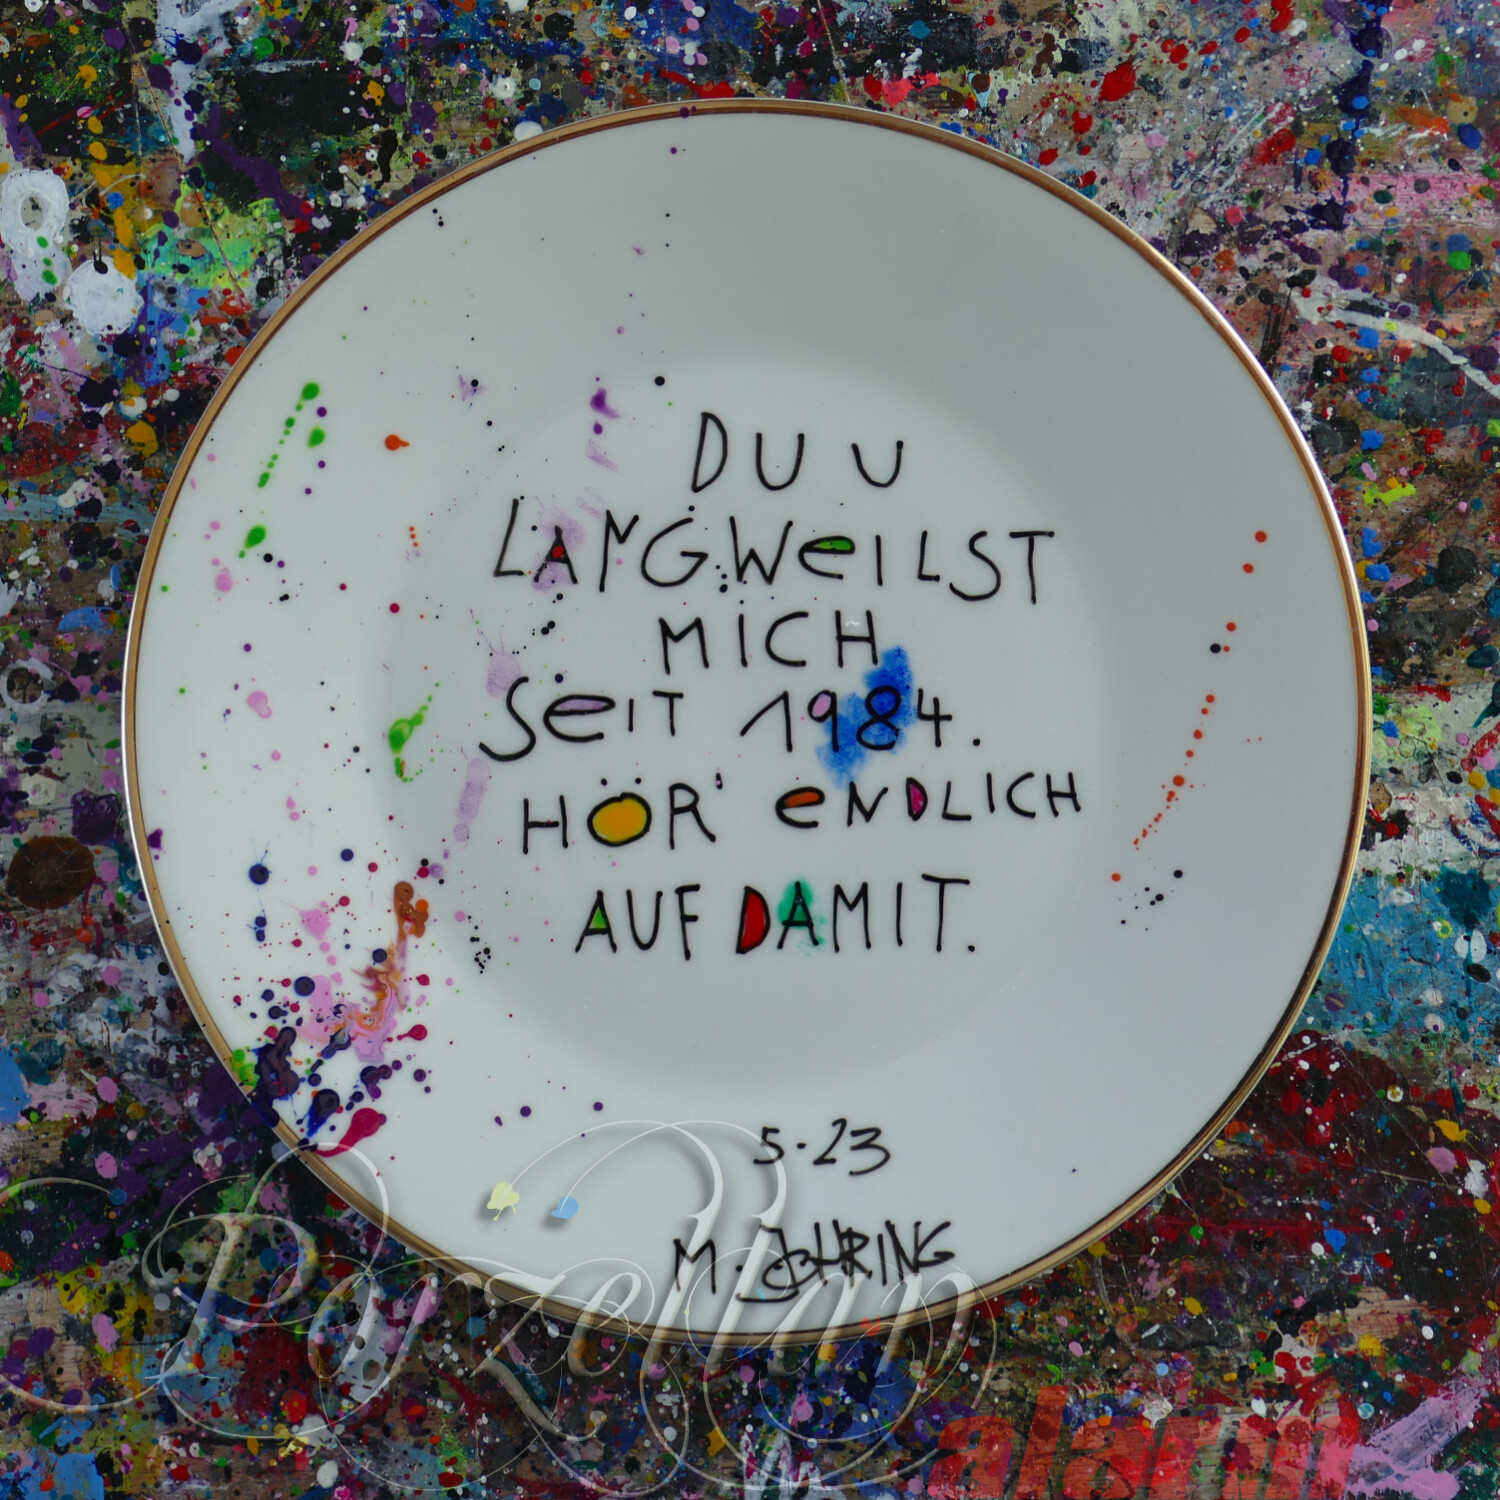 DU U
LANGWeILST
MiCH
SeiT 1984.
HÖR' eNDLICH
AUF DAMIT.
5-23
M. JOHRING
Porzellan
alarm